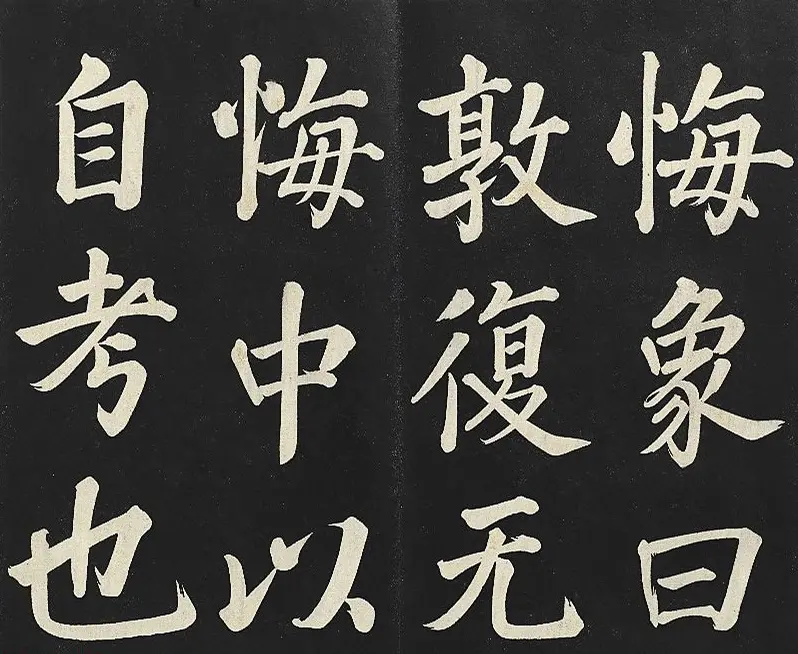 悔象曰
敦復无
悔中以
自考也